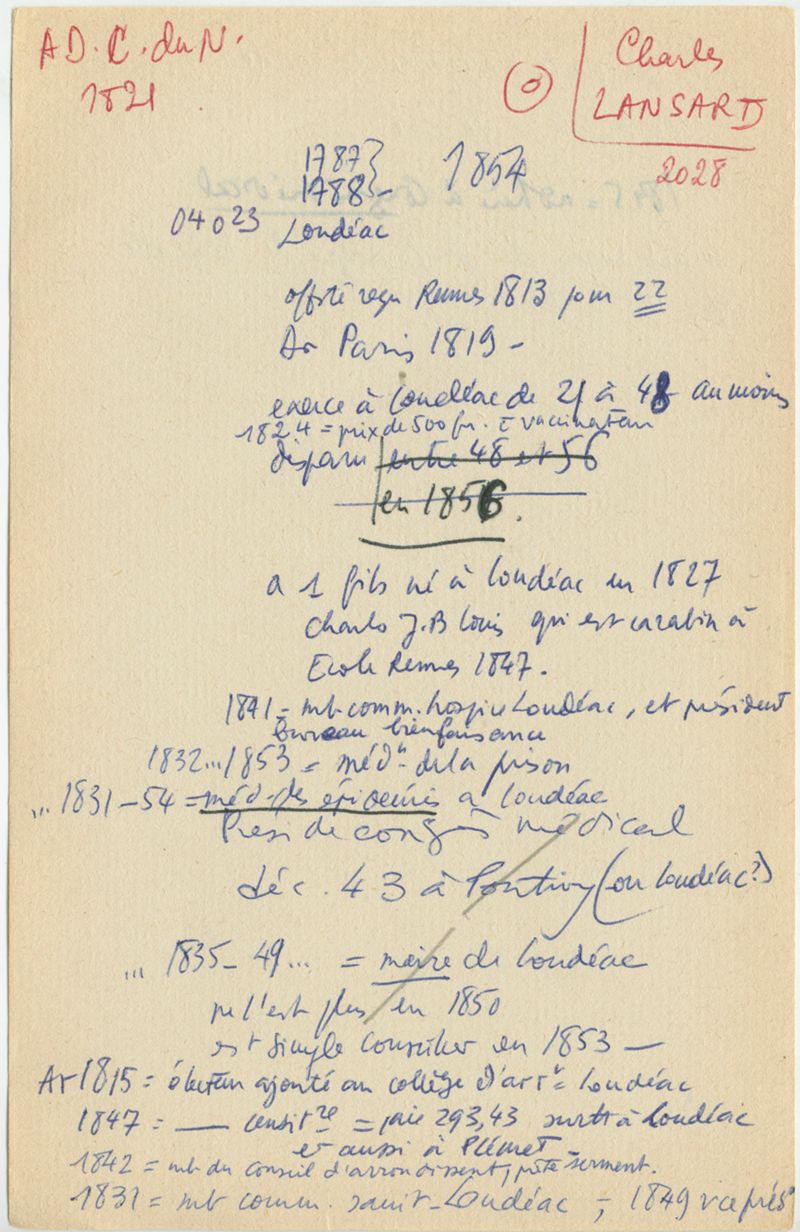 A D. C. du N.
1821
Charles
LANSARD
2028
1787
1788 -
1854
04023
Loudéac
off. té reçu Rennes 1813 pour 22
Dr Paris 1819 -
exerce à Loudéac de 21 à 48 au moins
1824 = prix de 500 fr. vaccination
disparu entre 48 et 56
en 1856.
a 1 fils né à Loudéac en 1827
Charles J.B Louis qui est carabin à
Ecole Rennes 1847.
1841 = mb comm. hospice Loudéac, et président
bureau bienfaisance
1832...1853 = médn de la prison
... 1831-54 = méd. des épidémies à Loudéac
Présidence congrès médical
déc. 43 à Pontivy (ou Loudéac?)
... 1835-49... = maire de Loudéac
ne l'est plus en 1850
est simple conseiller en 1853 —
Ar 1815 = électeur ajouté au collège d'arrt = Loudéac
1847 = — censitre = paie 293,43 surtt à Loudéac
et aussi à Plémet
1842 = mb du conseil d'arrondissent, prête serment.
1831 = mb comm. sanit. Loudéac, - 1849 vice prést